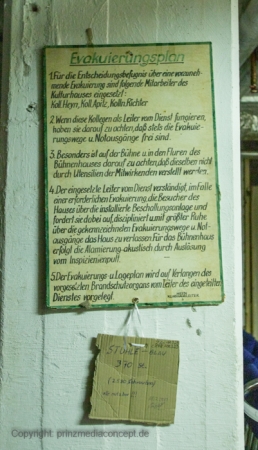 Evakuierungsplan
1. Für die Entscheidungsbefugnis über eine vorzuneh-
mende Evakuierung sind folgende Mitarbeiter des
Kulturhauses eingesetzt:
Koll. Heyn, Koll. Apitz, Kolln. Richter
2. Wenn diese Kollegen als Leiter vom Dienst fungieren,
haben sie darauf zu achten, daß stets die Evakuie-
rungswege u. Notausgänge frei sind.
3. Besonders ist auf der Bühne u. in den Fluren des
Bühnenhauses darauf zu achten, daß dieselben nicht
durch Utensilien der Mitwirkenden verstellt werden.
4. Der eingesetzte Leiter vom Dienst verständigt, im Falle
einer erforderlichen Evakuierung, die Besucher des
Hauses über die installierte Beschallungsanlage und
fordert sie dabei auf, diszipliniert u. mit größter Ruhe
über die gekennzeichneten Evakuierungswege u. Not-
ausgänge das Haus zu verlassen. Für das Bühnenhaus
erfolgt die Alarmierung akustisch durch Auslösung
vom Inspizientenpult.
5. Der Evakuierungs- u. Lageplan wird auf Verlangen des
vorgesetzten Brandschutzorgans vom Leiter des
Dienstes vorgelegt.
STÜHLE
370
Copyright: prinzmediaconcept.de